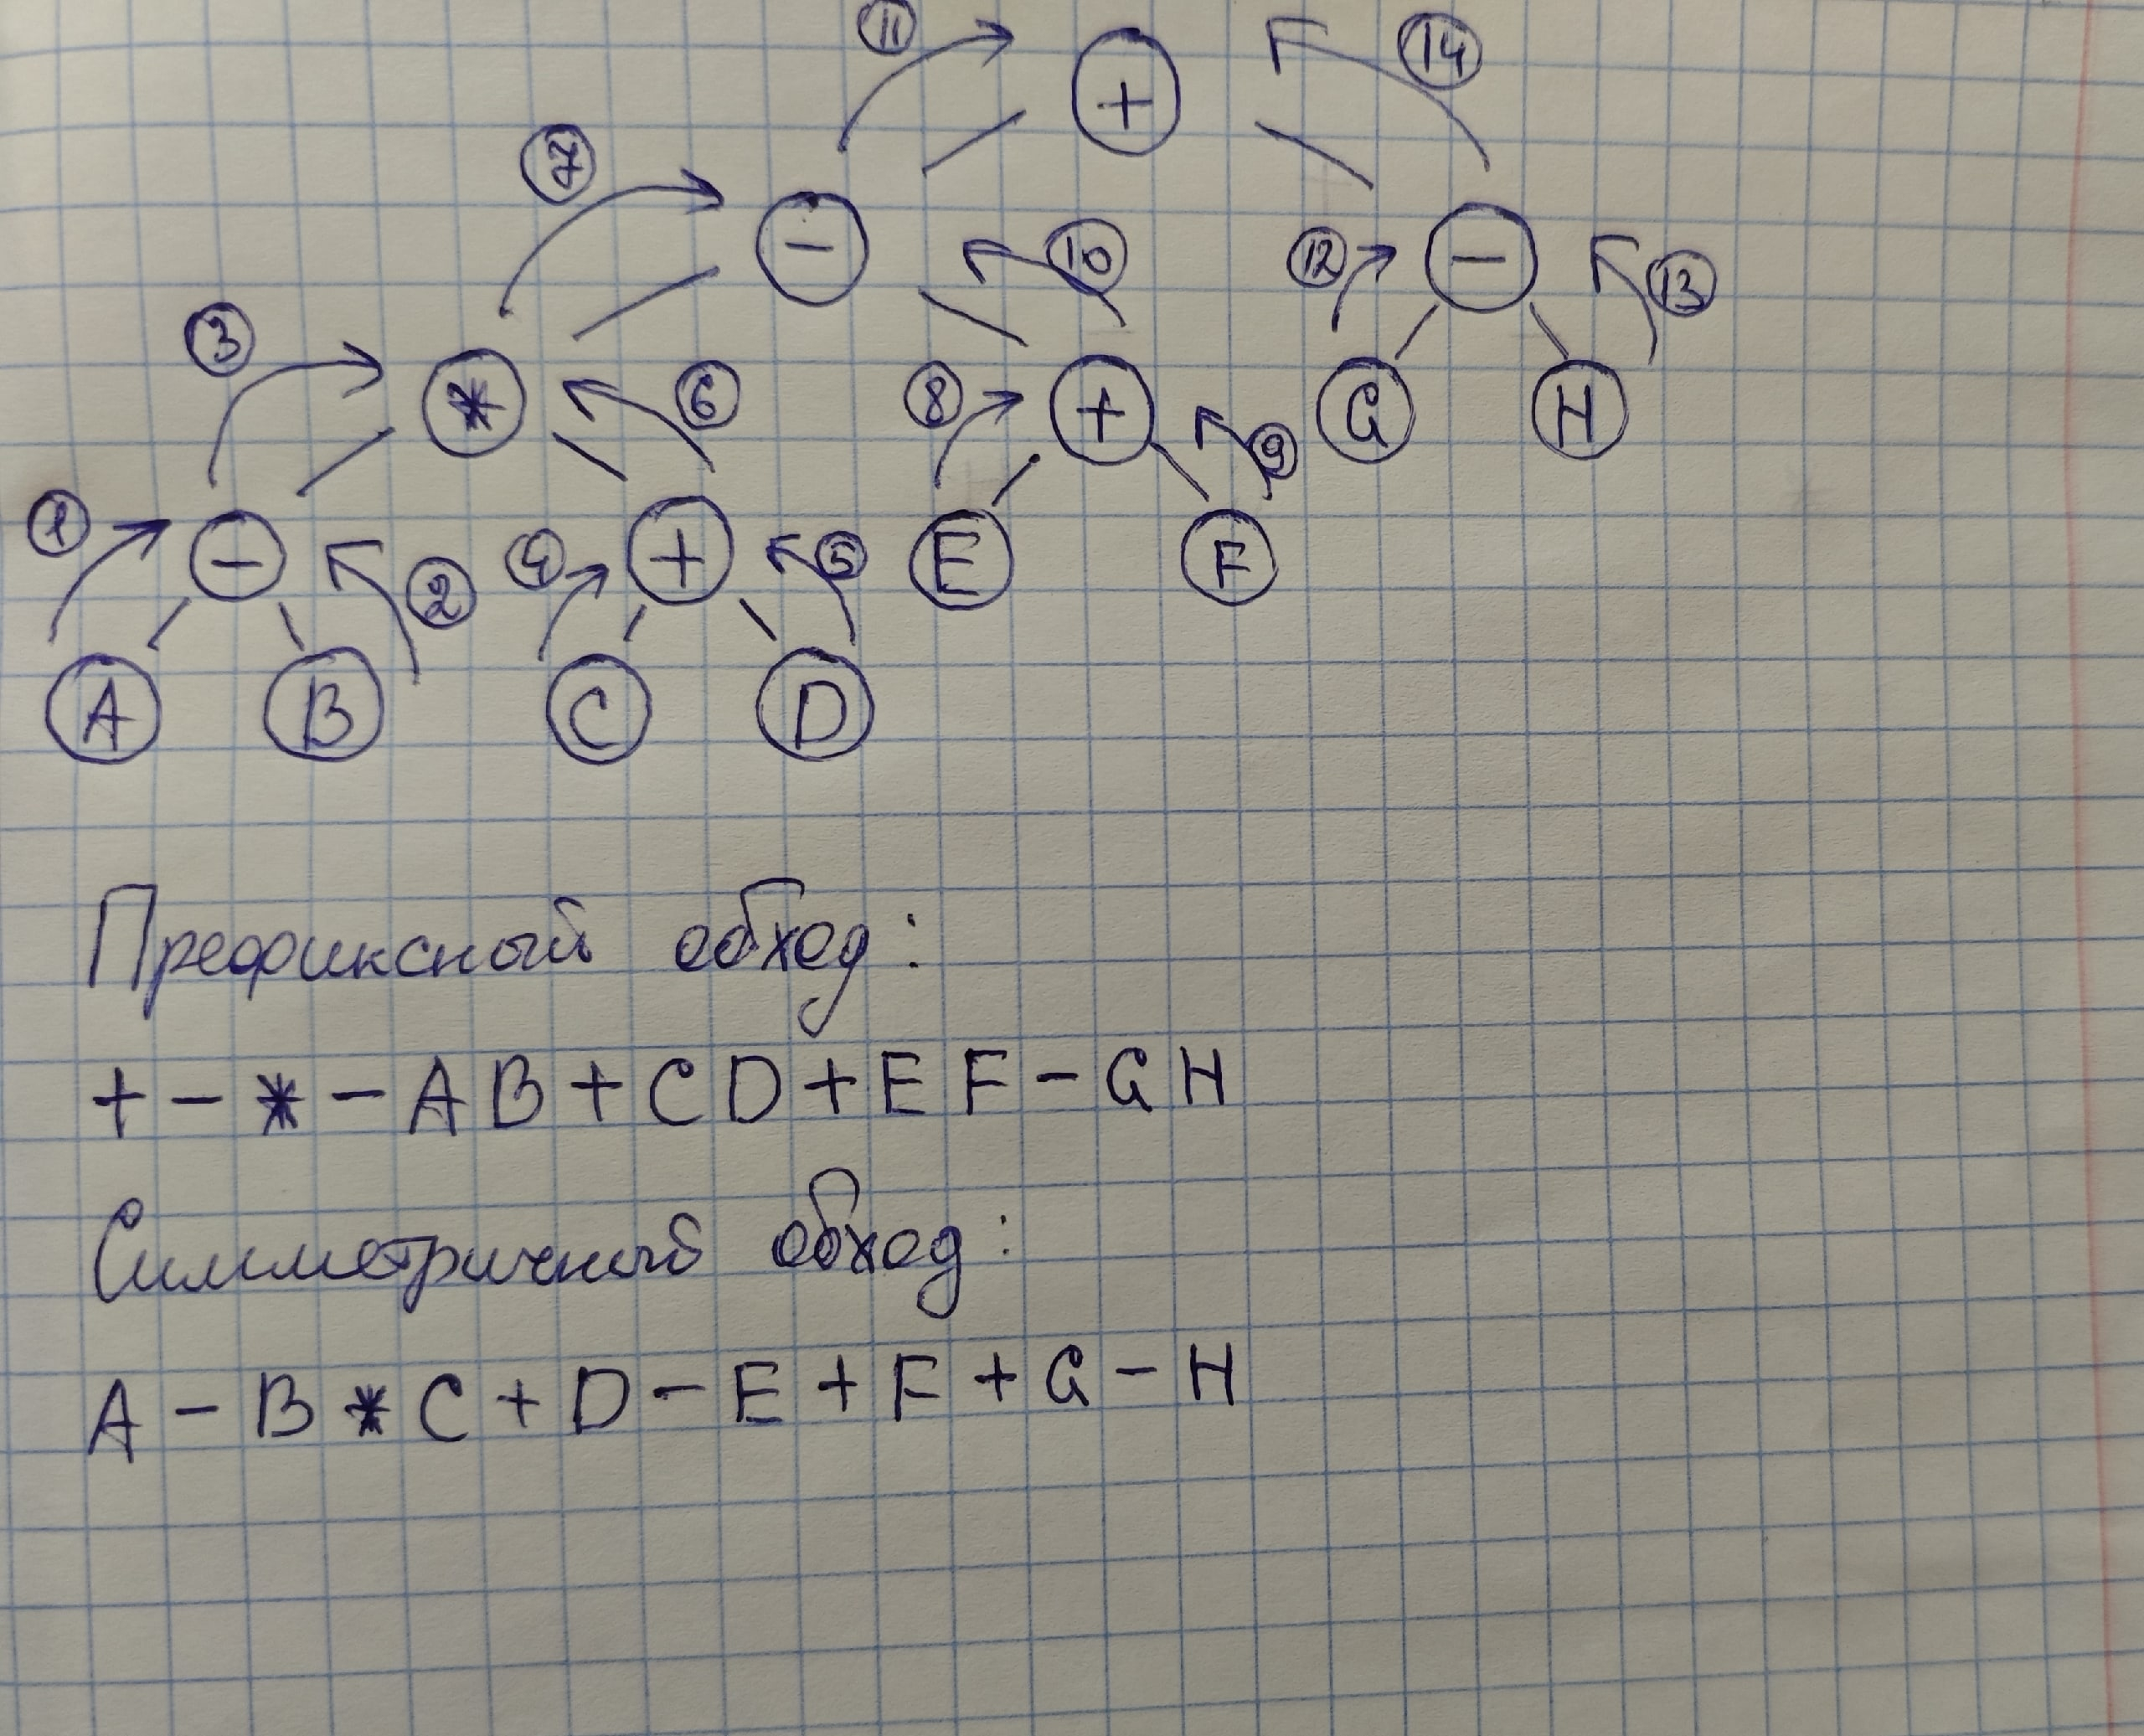 11 + 14
7 - 10 12 - 13
3 * 6 8 + 9 G H
1 - 2 4 + 5 E F
A B C D
Префиксный обход:
+ - * - A B + C D + E F - G H
Симметричный обход:
A - B * C + D - E + F + G - H